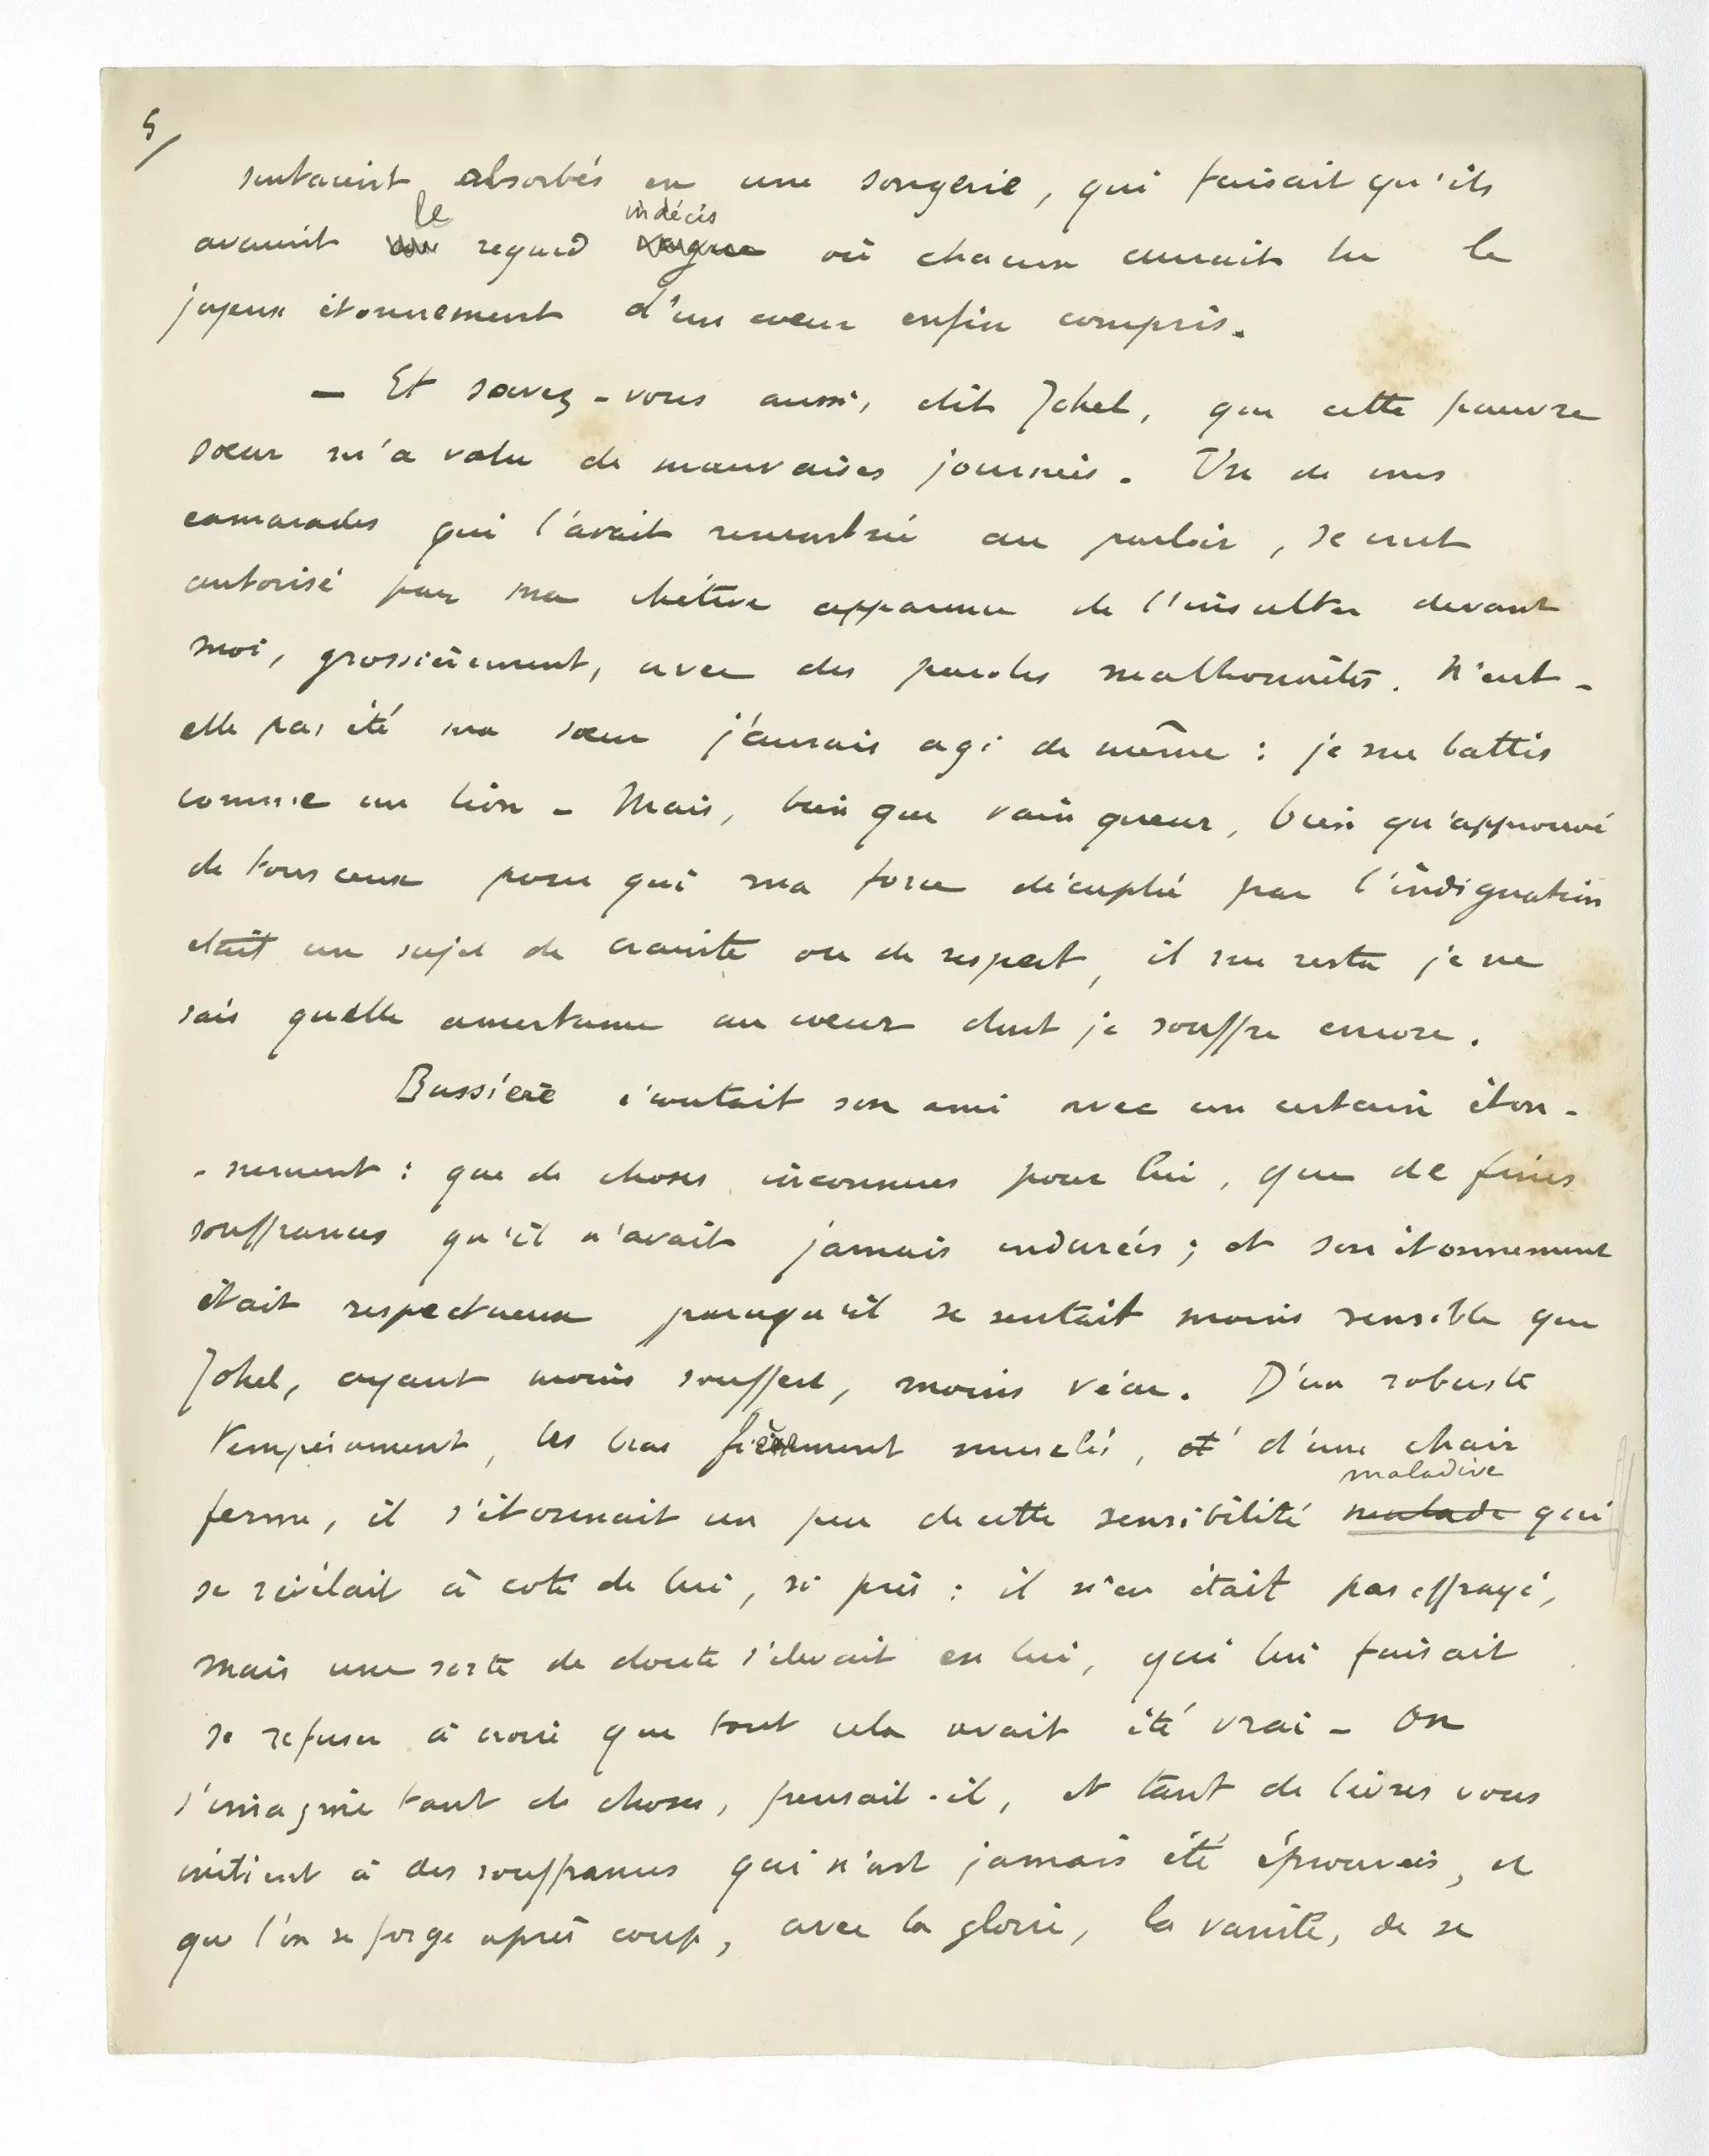 5/
sentaient absorbés en une songerie, qui faisait qu'ils
le indécis
avaient un regard vague où chacun aurait lu le
joyeux étonnement d'un coeur enfin compris.
— Et savez-vous aussi, dit Johel, que cette pauvre
soeur m'a valu de mauvaises journées. Un de mes
camarades qui l'avait rencontrée au parloir, se crut
autorisé par ma chétive apparence de l'insulter devant
moi, grossièrement, avec des paroles malhonnêtes. N'eut-
elle pas été ma soeur j'aurais agi de même : je me battis
comme un lion - Mais, bien que vainqueur, bien qu'approuvé
de tous ceux pour qui ma force décuplée par l'indignation
était un sujet de crainte ou de respect, il me resta je ne
sais quelle amertume au coeur dont je souffre encore.
Bussière écoutait son ami avec un certain éton-
-nement : que de choses inconnues pour lui, que de fines
souffrances qu'il n'avait jamais endurées ; et son étonnement
était respectueux parcequ'il se sentait moins sensible que
Johel, ayant moins souffert, moins vécu. D'un robuste
tempérament, les bras fièrement musclés, et d'une chair
maladive
ferme, il s'étonnait un peu de cette sensibilité malade qui
se révélait à coté de lui, si près : il n'en était pas effrayé,
mais une sorte de doute s'élevait en lui, qui lui faisait
se refuser à croire que tout cela avait été vrai - On
s'imagine tant de choses, pensait-il, et tant de livres vous
initient à des souffrances qui n'ont jamais été éprouvées, et
que l'on se forge après coup, avec la gloire, la vanité, de se